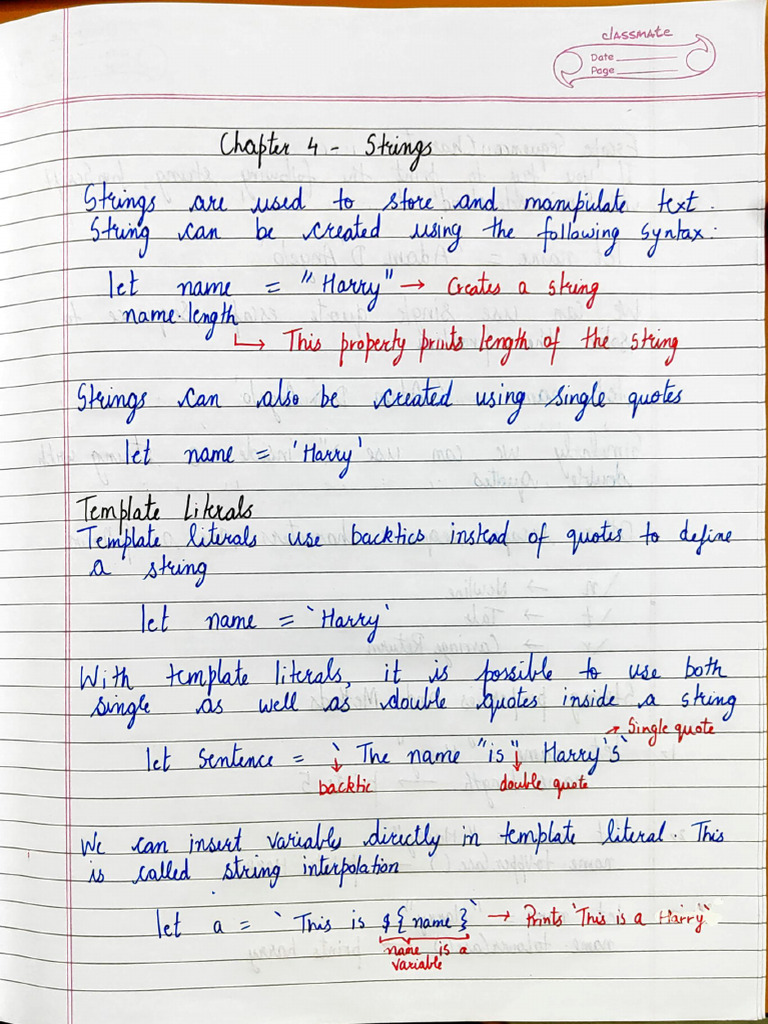 classmate
Date
Page
Chapter 4 - Strings
Strings are used to store and manipulate text.
String can be created using the following syntax:
let name = "Harry" → Creates a string
name.length
↳ This property prints length of the string
Strings can also be created using single quotes
let name = 'Harry'
Template Literals
Template literals use backtics instead of quotes to define
a string
let name = `Harry`
With template literals, it is possible to use both
single as well as double quotes inside a string
→ Single quote
let sentence = ` The name "is" Harry's`
↓ backtic ↓ double quote
We can insert variables directly in template literal. This
is called string interpolation
let a = `This is ${name}` → Prints 'This is a Harry'
name is a
variable